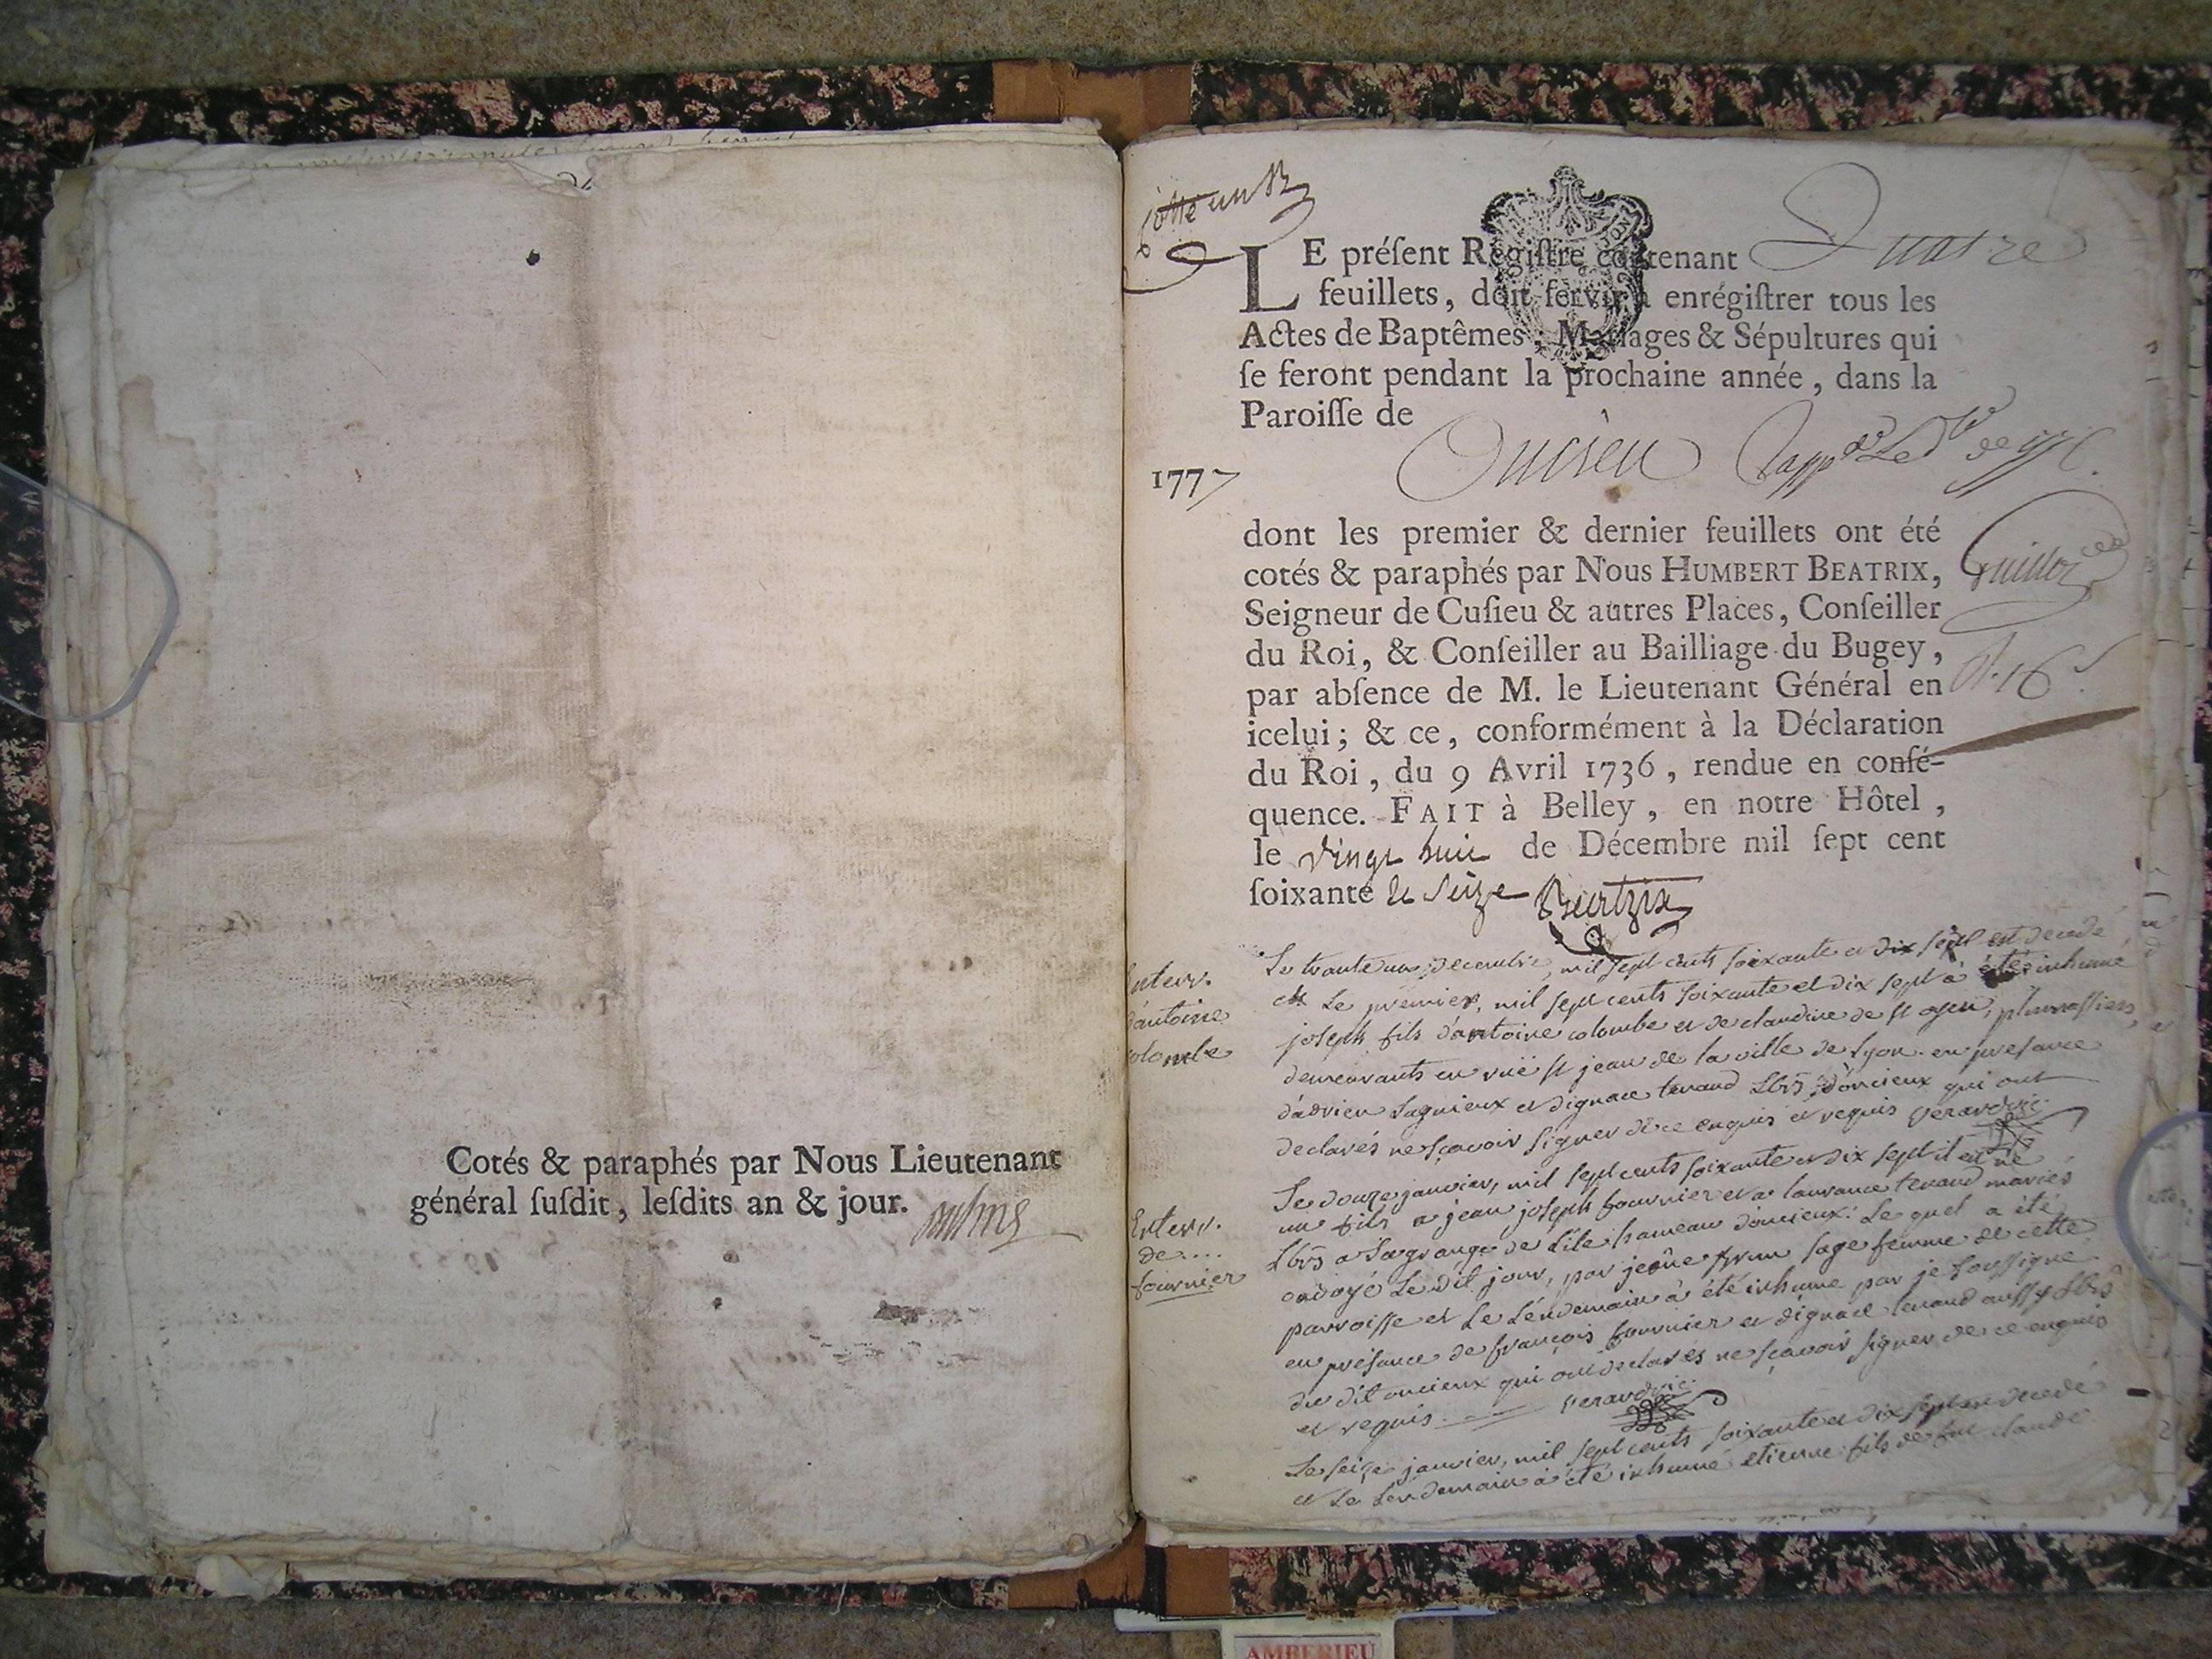 Cotés & paraphés par Nous Lieutenant
général ſuſdit, leſdits an & jour.
Cotté un
LE préſent Régiſtre contenant Quatre
feuillets, doit ſervir à enrégiſtrer tous les
Actes de Baptêmes, Mariages & Sépultures qui
ſe feront pendant la prochaine année, dans la
Paroiſſe de
Oncieu
1777
dont les premier & dernier feuillets ont été
cotés & paraphés par Nous HUMBERT BEATRIX,
Seigneur de Cuſieu & autres Places, Conſeiller
du Roi, & Conſeiller au Bailliage du Bugey,
par abſence de M. le Lieutenant Général en
icelui; & ce, conformément à la Déclaration
du Roi, du 9 Avril 1736, rendue en conſé-
quence. FAIT à Belley, en notre Hôtel,
le vingt huit de Décembre mil ſept cent
ſoixante et seize Beatrix
Enterr.
d'antoine
colombe
Le trante un decembre, mil sept cents soixante et dix sept est decedé
et Le premier, mil sept cents soixante et dix sept à été inhumé
joseph fils d'antoine colombe et de claudine de st
demeurants en ruë st jean de la ville de Lyon en presance
d'adrien Lagnieux et d'ignace tenand Lbrs d'oncieux qui ont
declarés ne sçavoir signer de ce enquis et requis
Enterr.
de....
fournier
Le douze janvier, mil sept cents soixante et dix sept il est né
un fils a jean joseph fournier et a laurance tenand mariés
Lbrs a Lagrange de Lile hameau d'oncieux: Le quel a été
ondoyé Le dit jour, par sage femme de cette
parroisse et Le Lendemain à été inhumé par je soussigné
en presance de françois fournier et d'ignace tenand aussy Lbrs
du dit oncieux qui ont declarés ne sçavoir signer de ce enquis
et requis
Le seize janvier, mil sept cents soixante et dix sept est decedé
et Le Lendemain à été inhumé etienne fils de feu claude
AMBERIEU